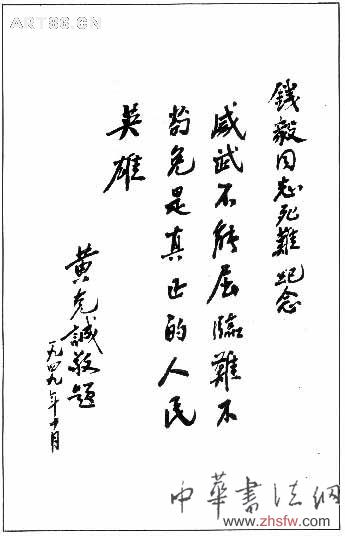 錢毅同志死難紀念
威武不能屈臨難不
苟免是真正的人民
英雄
黄克誠敬題
一九四九年十月
中華書法網
www.zhsfw.com